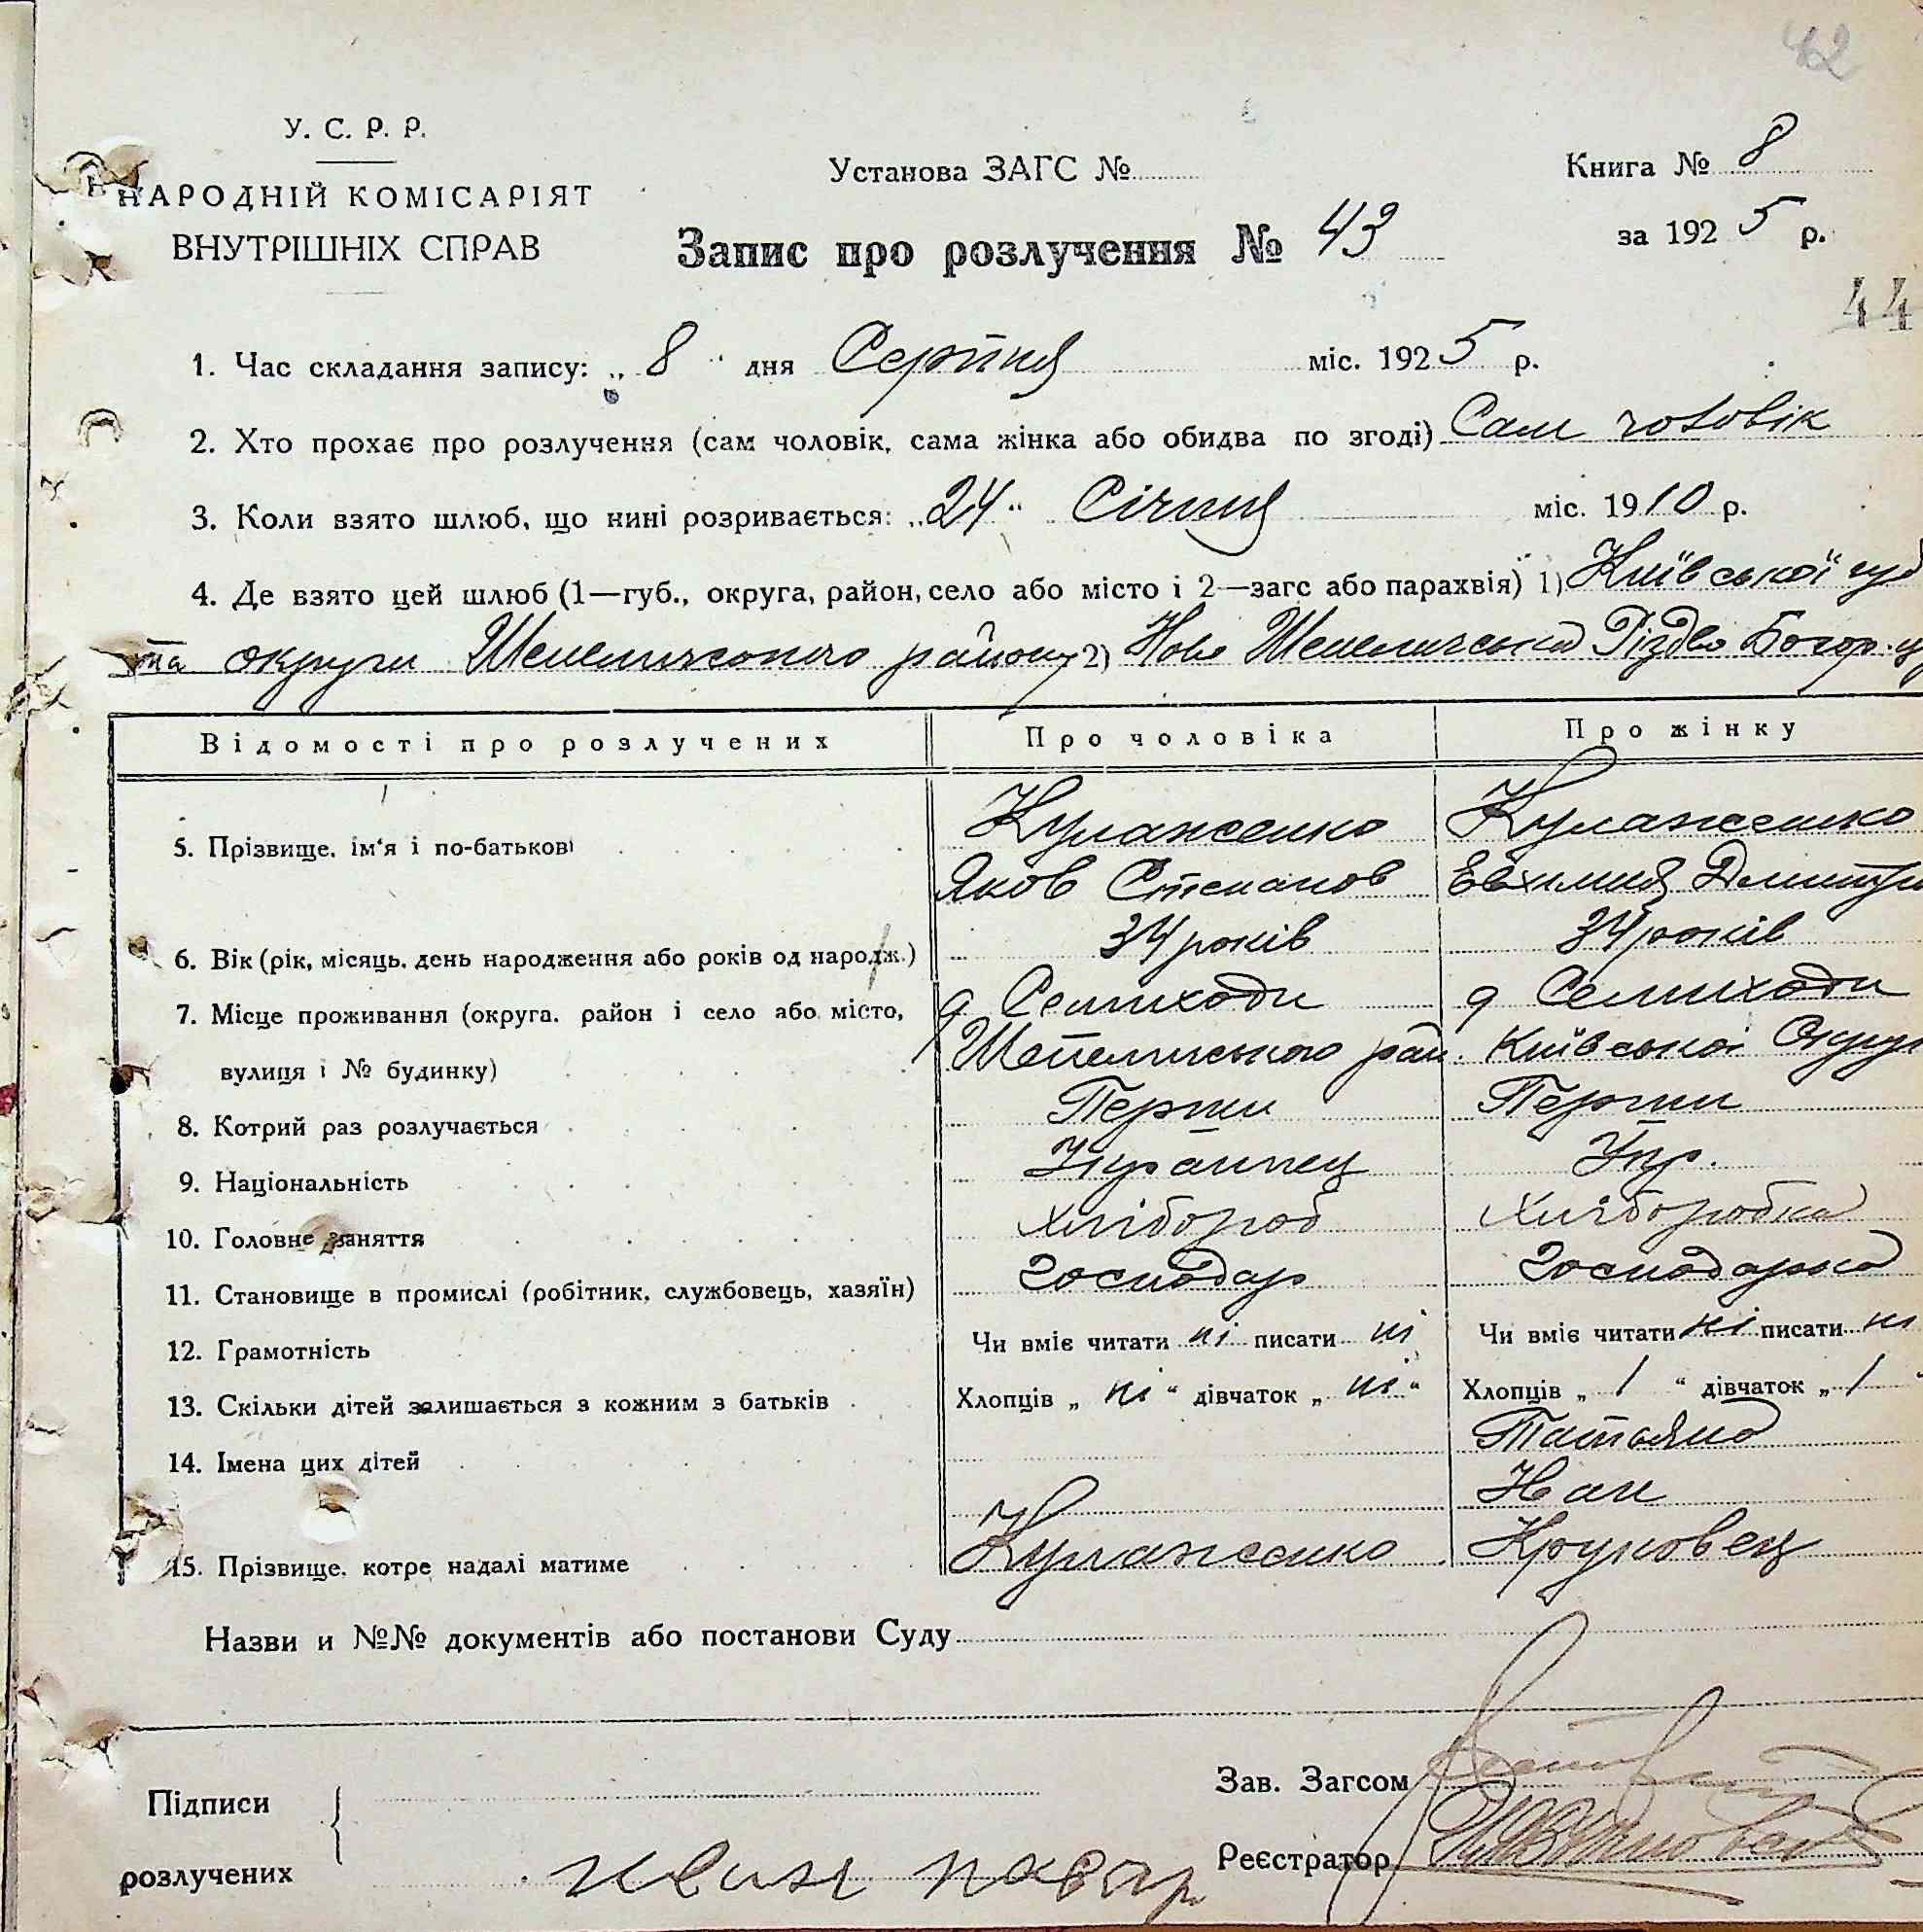 42
У. С. Р. Р.
НАРОДНІЙ КОМІСАРІЯТ
ВНУТРІШНІХ СПРАВ
Установа ЗАГС №
Книга № 8
Запис про розлучення № 43
за 1925 р.
44
1. Час складання запису: „ 8 " дня Серпня міс. 1925 р.
2. Хто прохає про розлучення (сам чоловік, сама жінка або обидва по згоді) Сам чоловік
3. Коли взято шлюб, що нині розривається: „24" Січня міс. 1910 р.
4. Де взято цей шлюб (1—губ., округа, район, село або місто і 2—загс або парахвія) 1) Київської губ
та округи Шепеличського району 2) Ново Шепеличська Різдво Богор. ц
Відомості про розлучених Про чоловіка Про жінку
5. Прізвище, ім'я і по-батькові Кулаженко Кулаженко
Яков Степанов Евхимия Дмитри
6. Вік (рік, місяць, день народження або років од народж.) 34 років 34 років
7. Місце проживання (округа, район і село або місто, д Семиходи д Семиходи
вулиця і № будинку) Шепеличського рай. Київської Округи
8. Котрий раз розлучається Перши Перши
9. Національність Українец Укр.
10. Головне заняття Хлібороб Хліборобка
11. Становище в промислі (робітник, службовець, хазяїн) Господар Господарка
12. Грамотність Чи вміє читати ні писати ні Чи вміє читати ні писати ні
13. Скільки дітей залишається з кожним з батьків Хлопців „ ні " дівчаток „ ні " Хлопців „ 1 " дівчаток „ 1 "
14. Імена цих дітей Татьяна
15. Прізвище, котре надалі матиме Кулаженко
Назви и №№ документів або постанови Суду
Підписи
розлучених
Зав. Загсом
Реєстратор